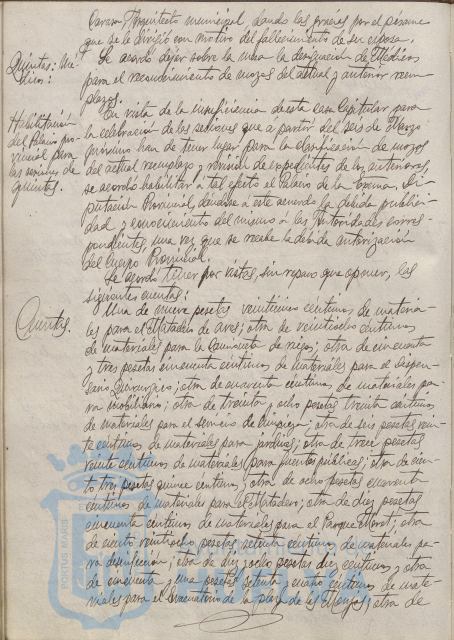 Caram, Arquitecto municipal dando las gracias por el pésame
que se le dirigió con motivo del fallecimiento de su esposa.
Quintas: Me-
dicos:
Se acordó dejar sobre la mesa la designación de Médicos
para el reconocimiento de mozos del actual y anterior reem-
plazos.
Habilitación
del Palacio pro-
vincial para
las sesiones de
quintas.
En vista de la insuficiencia de esta casa Capitular para
la celebración de las sesiones que a partir del seis de Marzo
próximo han de tener lugar para la clasificación de mozos
del actual reemplazo y revisión de expedientes de los anteriores,
se acordó habilitar a tal efecto el Palacio de la Excma. Di-
putación Provincial, dándose a este acuerdo la debida publici-
dad y conocimiento del mismo a las Autoridades corres-
pondientes, una vez que se recabe la debida autorización
del Cuerpo Provincial.
Cuentas.
Se acordó tener por vistas, sin reparo que oponer, las
siguientes cuentas:
Una de nueve pesetas veinticinco céntimos, de materia-
les para el Matadero de aves; otra de veintiocho céntimos
de materiales para la camioneta de riego; otra de cincuenta
y tres pesetas cincuenta céntimos de materiales para el dispen-
sario Quirúrgico; otra de cuarenta céntimos, de materiales pa-
ra mobiliario; otra de treinta y ocho pesetas treinta céntimos,
de materiales para el servicio de limpieza; otra de seis pesetas vein-
te céntimos, de materiales para jardines; otra de trece pesetas
veinte céntimos de materiales para fuentes públicas; otra de cien-
to tres pesetas quince céntimos; otra de ocho pesetas cuarenta
céntimos, de materiales para el Matadero; otra de diez pesetas
cincuenta céntimos de materiales para el Parque Móvil; otra
de ciento veintiocho pesetas setenta céntimos de materiales pa-
ra desinfección; otra de diez y ocho pesetas diez céntimos y otra
de cincuenta y una pesetas setenta y cinco céntimos de mate-
riales para el evacuatorio de la plaza de las Monjas; otra de